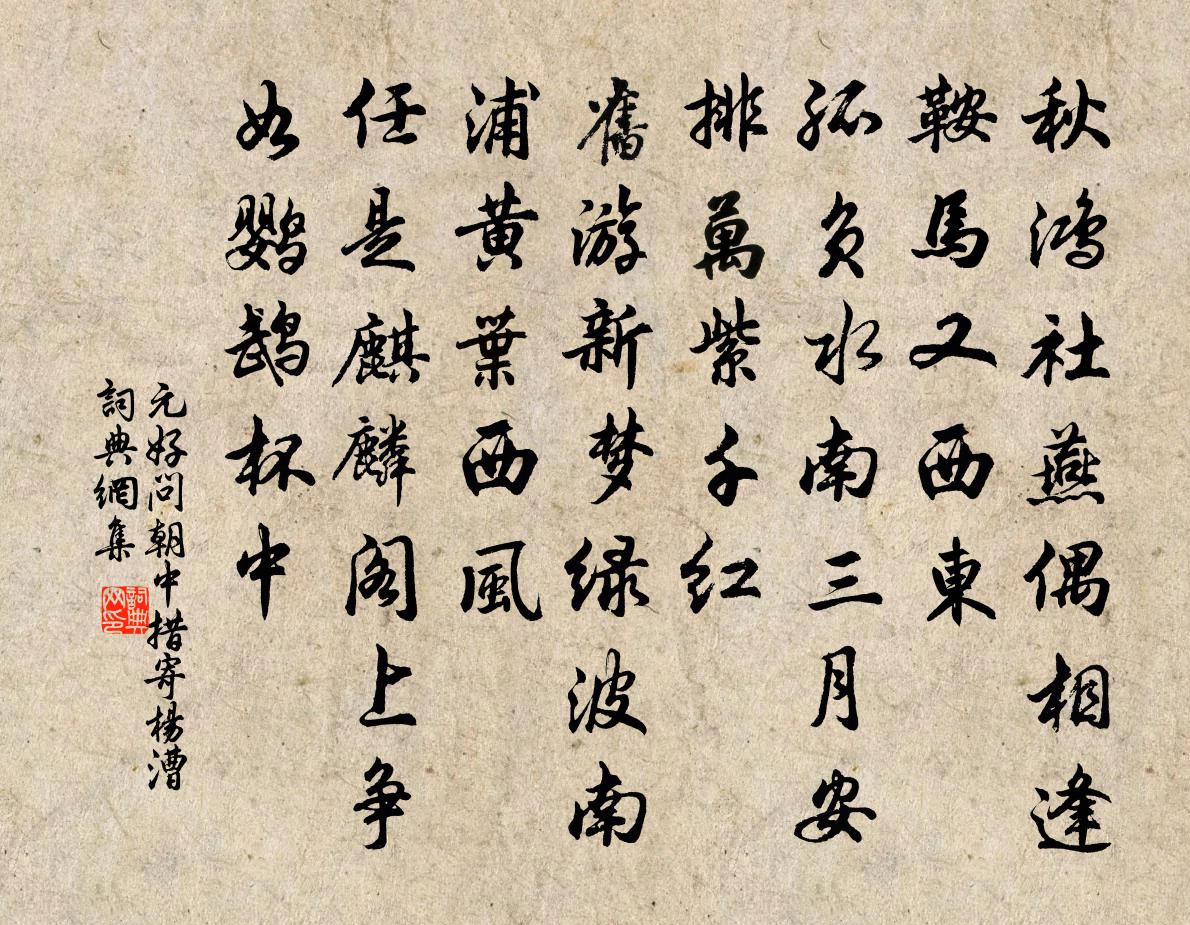 秋鸿社燕偶相逢
鞍馬又西東
孤负水南三月安
排萬紫千红
舊游新梦绿波南
浦黄葉西風
任是麒麟阁上争
如鹦鹉杯中
元好问朝中措寄杨漕
詞典網集
詞典网印